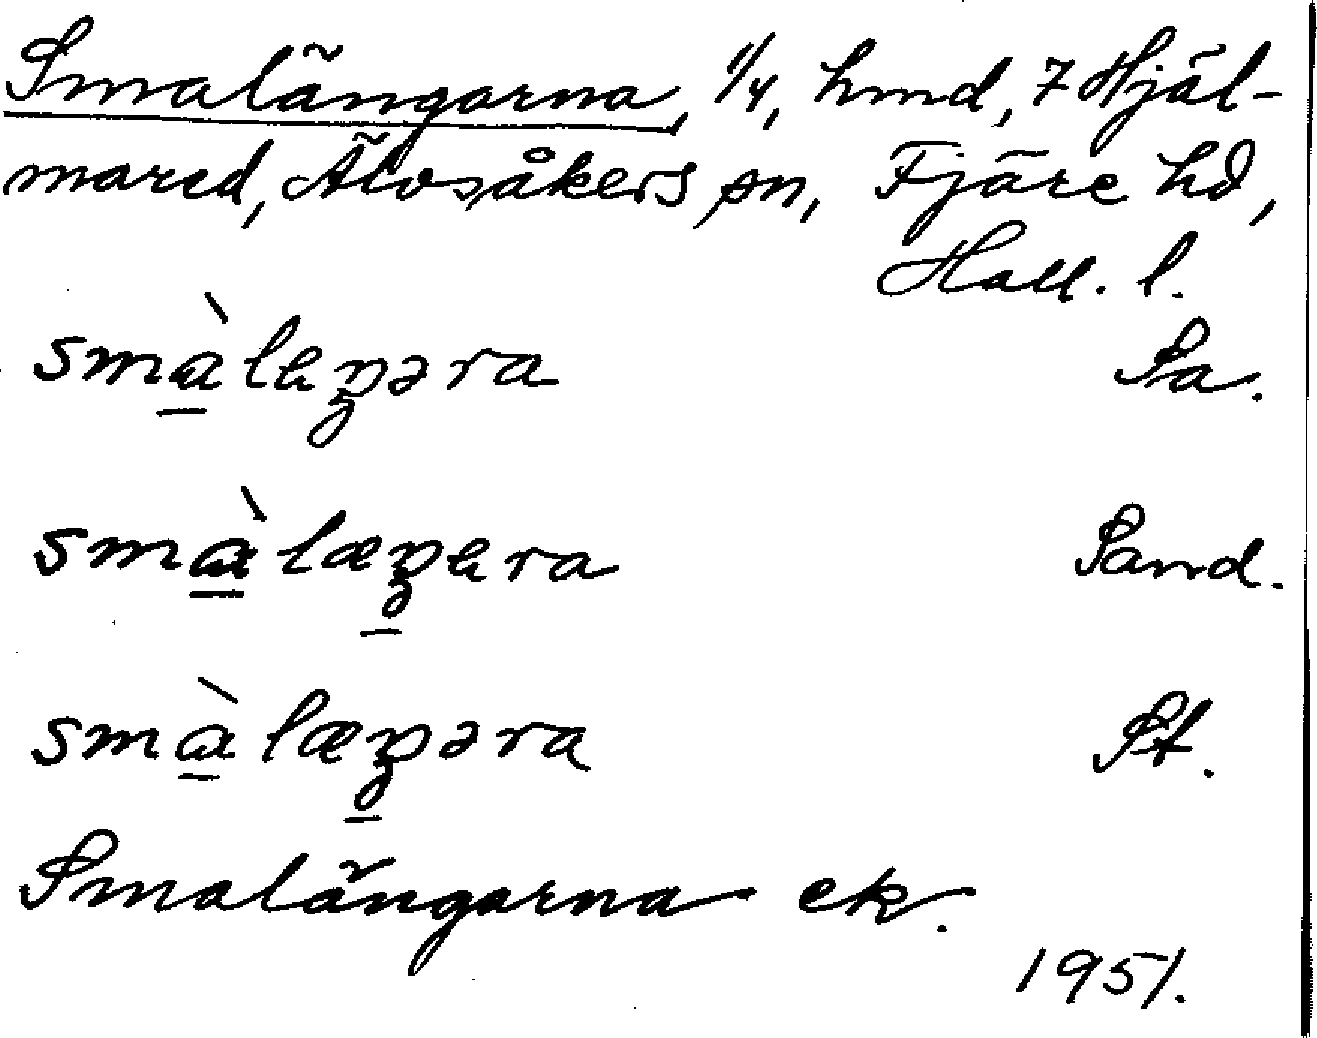 Smalängarna, 1/4, hmd, 7 Hjäl-
mared, Älvsåkers sn, Fjäre hd,
Hall. l.
smɑ̀lɐŋəra Sa.
smɑ̀læŋɐra Sand.
smɑ̀læŋəra St.
Smalängarna ek.
1951.